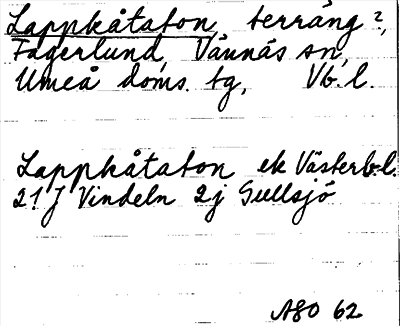 Lappkåtaton, terräng?,
Fagerlund, Vännäs sn,
Umeå doms. tg, Vb. l.
Lappkåtaton ek Västerb. l.
21 J Vindeln 2j Gullsjö
ASO 62